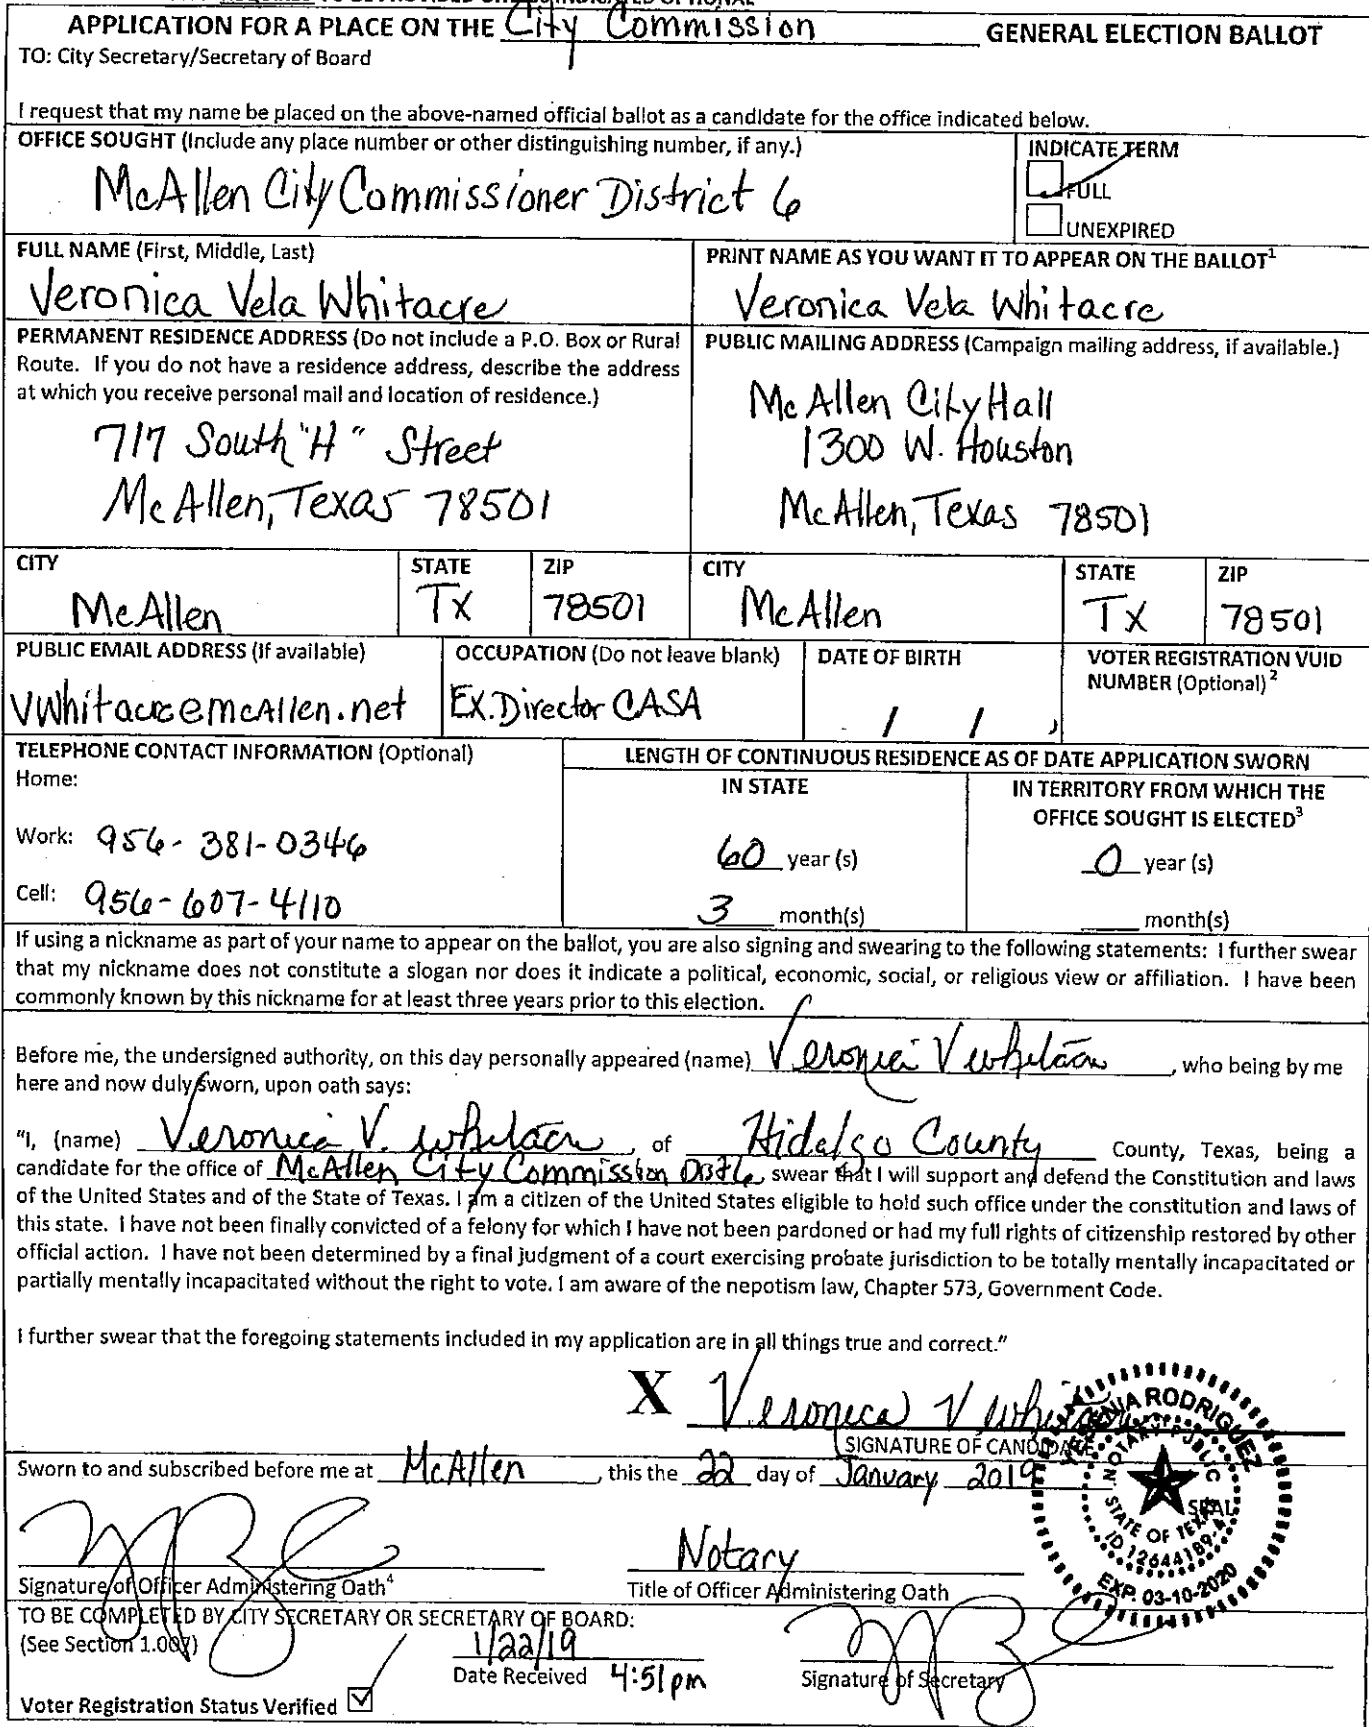 APPLICATION FOR A PLACE ON THE City Commission GENERAL ELECTION BALLOT
TO: City Secretary/Secretary of Board
I request that my name be placed on the above-named official ballot as a candidate for the office indicated below.
OFFICE SOUGHT (Include any place number or other distinguishing number, if any.)
McAllen City Commissioner District 6
INDICATE TERM
FULL
UNEXPIRED
FULL NAME (First, Middle, Last)
Veronica Vela Whitacre
PRINT NAME AS YOU WANT IT TO APPEAR ON THE BALLOT1
Veronica Vela Whitacre
PERMANENT RESIDENCE ADDRESS (Do not include a P.O. Box or Rural
Route. If you do not have a residence address, describe the address
at which you receive personal mail and location of residence.)
717 South "H" Street
McAllen, Texas 78501
PUBLIC MAILING ADDRESS (Campaign mailing address, if available.)
McAllen City Hall
1300 W. Houston
McAllen, Texas 78501
CITY
McAllen
STATE
TX
ZIP
78501
CITY
McAllen
STATE
TX
ZIP
78501
PUBLIC EMAIL ADDRESS (If available)
VWhitacre@mcAllen.net
OCCUPATION (Do not leave blank)
Ex. Director CASA
DATE OF BIRTH
/ /
VOTER REGISTRATION VUID
NUMBER (Optional)2
TELEPHONE CONTACT INFORMATION (Optional)
Home:
Work: 956-381-0346
Cell: 956-607-4110
LENGTH OF CONTINUOUS RESIDENCE AS OF DATE APPLICATION SWORN
IN STATE
60 year (s)
3 month(s)
IN TERRITORY FROM WHICH THE
OFFICE SOUGHT IS ELECTED3
0 year (s)
month(s)
If using a nickname as part of your name to appear on the ballot, you are also signing and swearing to the following statements: I further swear
that my nickname does not constitute a slogan nor does it indicate a political, economic, social, or religious view or affiliation. I have been
commonly known by this nickname for at least three years prior to this election.
Before me, the undersigned authority, on this day personally appeared (name) Veronica V Whitacre, who being by me
here and now duly sworn, upon oath says:
"I, (name) Veronica V. Whitacre, of Hidalgo County County, Texas, being a
candidate for the office of McAllen City Commission Dist 6, swear that I will support and defend the Constitution and laws
of the United States and of the State of Texas. I am a citizen of the United States eligible to hold such office under the constitution and laws of
this state. I have not been finally convicted of a felony for which I have not been pardoned or had my full rights of citizenship restored by other
official action. I have not been determined by a final judgment of a court exercising probate jurisdiction to be totally mentally incapacitated or
partially mentally incapacitated without the right to vote. I am aware of the nepotism law, Chapter 573, Government Code.
I further swear that the foregoing statements included in my application are in all things true and correct."
X Veronica V Whitacre
SIGNATURE OF CANDIDATE
Sworn to and subscribed before me at McAllen, this the 22 day of January 2019
SEAL
YESENIA RODRIGUEZ
NOTARY PUBLIC
STATE OF TEXAS
ID 12644189-4
EXP. 03-10-2020
Notary
Signature of Officer Administering Oath4
Title of Officer Administering Oath
TO BE COMPLETED BY CITY SECRETARY OR SECRETARY OF BOARD:
(See Section 1.007)
1/22/19
Date Received 4:51pm
Signature of Secretary
Voter Registration Status Verified